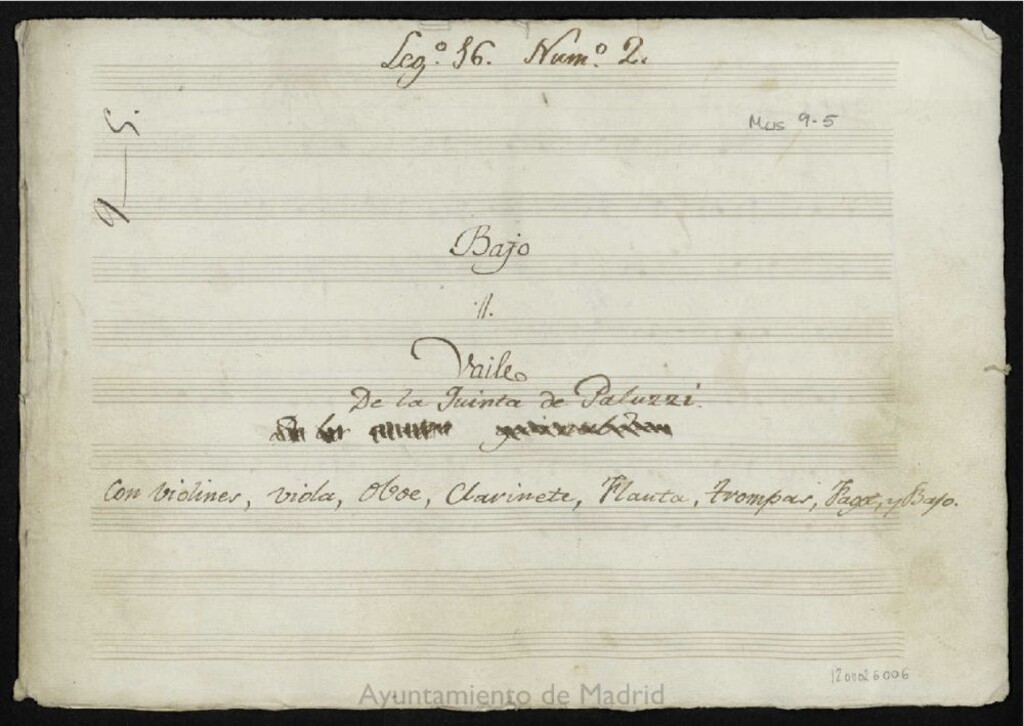 Leg.º 16. Num.º 2.
9—5.
Mus 9-5
Bajo
//.
Vaile
De la Quinta de Paluzzi.
Con violines, viola, Oboe, Clarinete, Flauta, trompas, Fagot, y Bajo.
1200026006
Ayuntamiento de Madrid